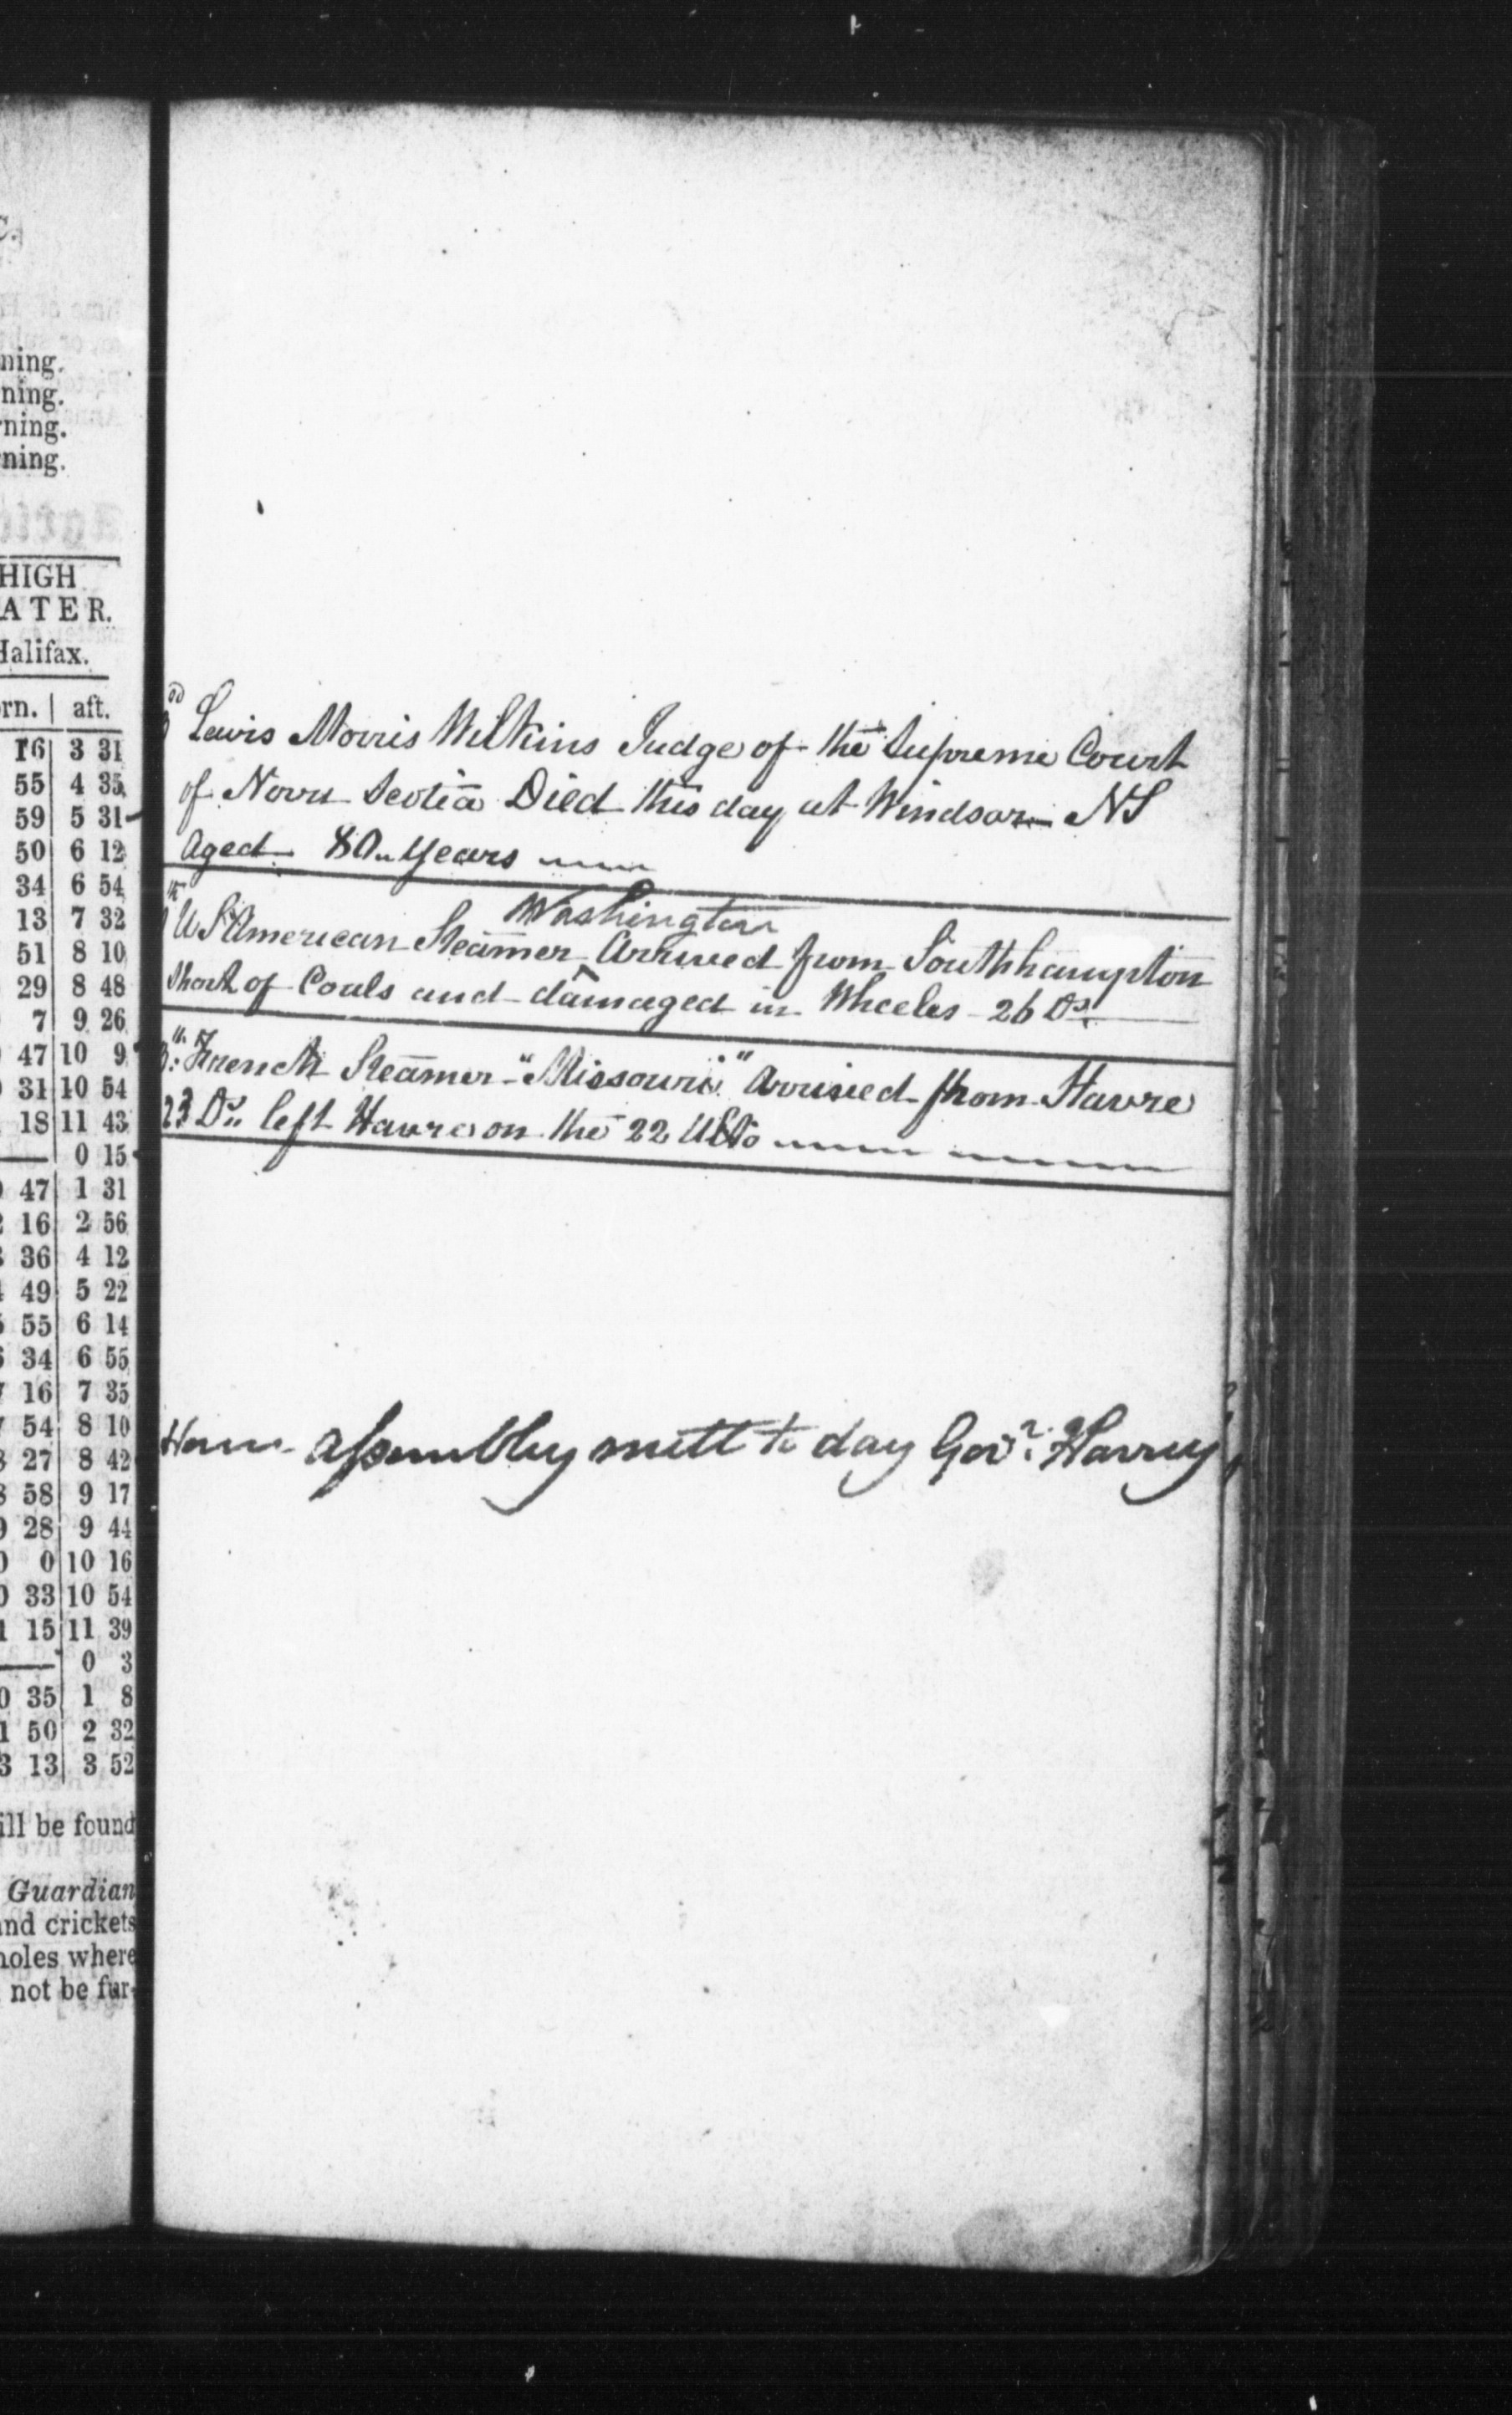 C.
ning.
ning.
rning.
ning.
HIGH
ATER.
Halifax.
orn. | aft.
16 3 31
55 4 35
59 5 31
50 6 12
34 6 54
13 7 32
51 8 10
29 8 48
7 9 26
47 10 9
31 10 54
18 11 43
— 0 15
47 1 31
16 2 56
36 4 12
49 5 22
55 6 14
34 6 55
16 7 35
54 8 10
27 8 42
58 9 17
28 9 44
0 10 16
33 10 54
15 11 39
— 0 3
0 35 1 8
1 50 2 32
3 13 3 52
ill be found
Guardian
and crickets
holes where
not be fur-
Lewis Morris Wilkins Judge of the Supreme Court
of Nova Scotia Died this day at Windsor NS
Aged 80 Years
Washington
US American Steamer Arrived from Southhampton
Short of Coals and damaged in Wheeles 26 Ds
French Steamer "Missouri" Arrived from Havre
23 Ds left Havre on the 22 Ulto
assembly mett to day Govr. Harvey